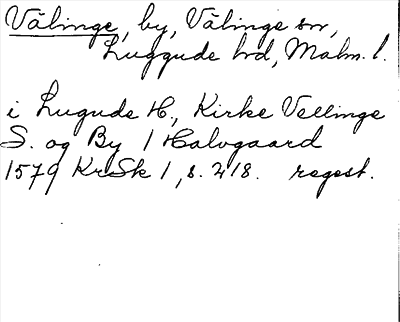 Välinge, by, Välinge sn,
Luggude hd, Malm. l.
i Lugude H., Kirke Vellinge
S. og By 1 Halvgaard
1579 KrSk 1, s. 218. regest.